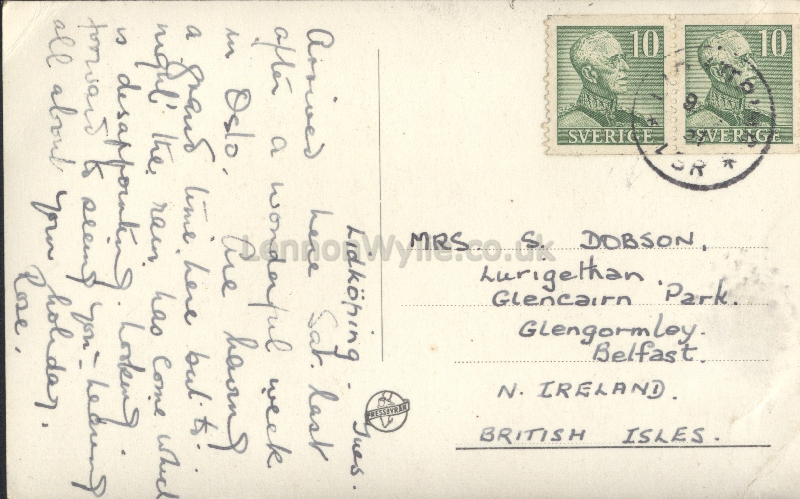 Lidköping. Tues.
Arrived here Sat. last
after a wonderful week
in Oslo. Are having
a grand time here but to-
night the rain has come which
is disappointing. Looking
forward to seeing you - hearing
all about your holiday.
Rose.
10
SVERIGE
10
SVERIGE
9
LBR
MRS. S. DOBSON,
Lurigethan
Glencairn Park.
Glengormley.
Belfast.
N. IRELAND.
BRITISH ISLES.
PRESSBYRÅN
LennonWylie.co.uk